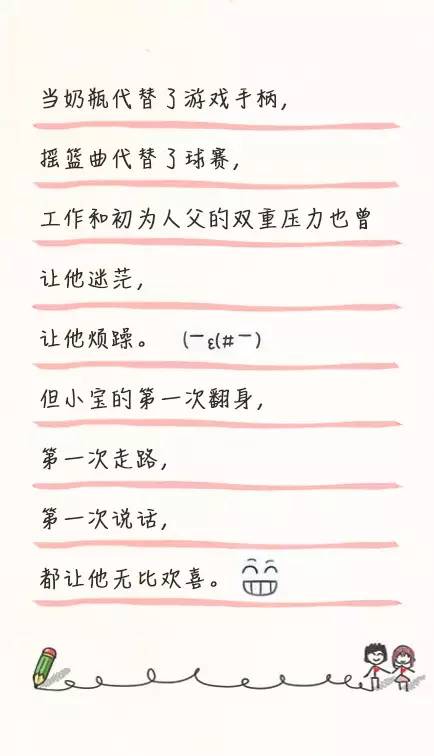 当奶瓶代替了游戏手柄,
摇篮曲代替了球赛,
工作和初为人父的双重压力也曾
让他迷茫,
让他烦躁。 (￣ε(#￣)
但小宝的第一次翻身,
第一次走路,
第一次说话,
都让他无比欢喜。